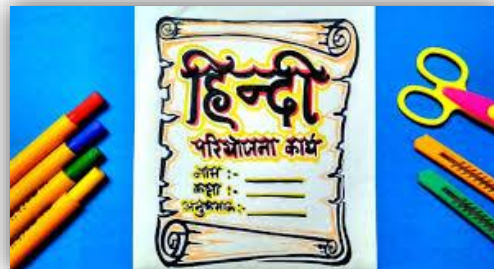 हिन्दी
परियोजना कार्य
नाम :-
कक्षा :-
अनुक्रमांक:-